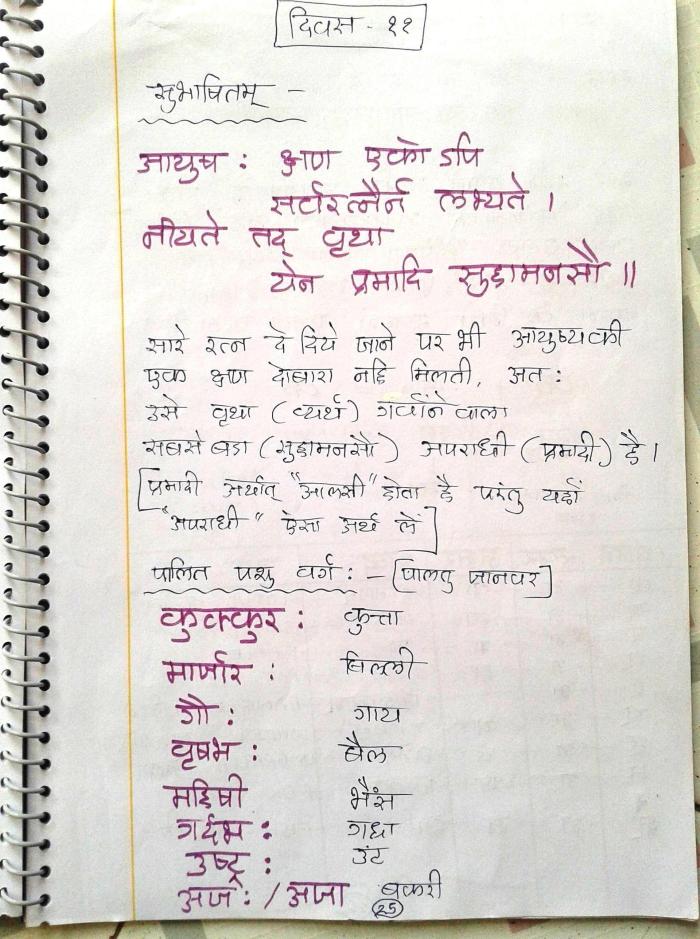 दिवस - ११
सुभाषितम् -
आयुष: क्षण एकोऽपि
सर्वरत्नैर्न लभ्यते ।
नीयते तद् वृथा
येन प्रमादि सुद्दामनसौ ॥
सारे रत्न दे दिये जाने पर भी आयुष्य की
एक क्षण दोबारा नहि मिलती, अत:
उसे वृथा (व्यर्थ) गवाँने वाला
सबसे बडा (सुद्दामनसौ) अपराधी (प्रमादी) है ।
[प्रमादी अर्थात् "आलसी" होता है परंतु यहाँ
"अपराधी" ऐसा अर्थ लें]
पालित पशु वर्ग: - [पालतु जानवर]
कुक्कुर: कुत्ता
मार्जार: बिल्ली
गौ: गाय
वृषभ: बैल
महिषी भैंस
गर्दभ: गधा
उष्ट्र: उंट
अज: / अजा बकरी
25